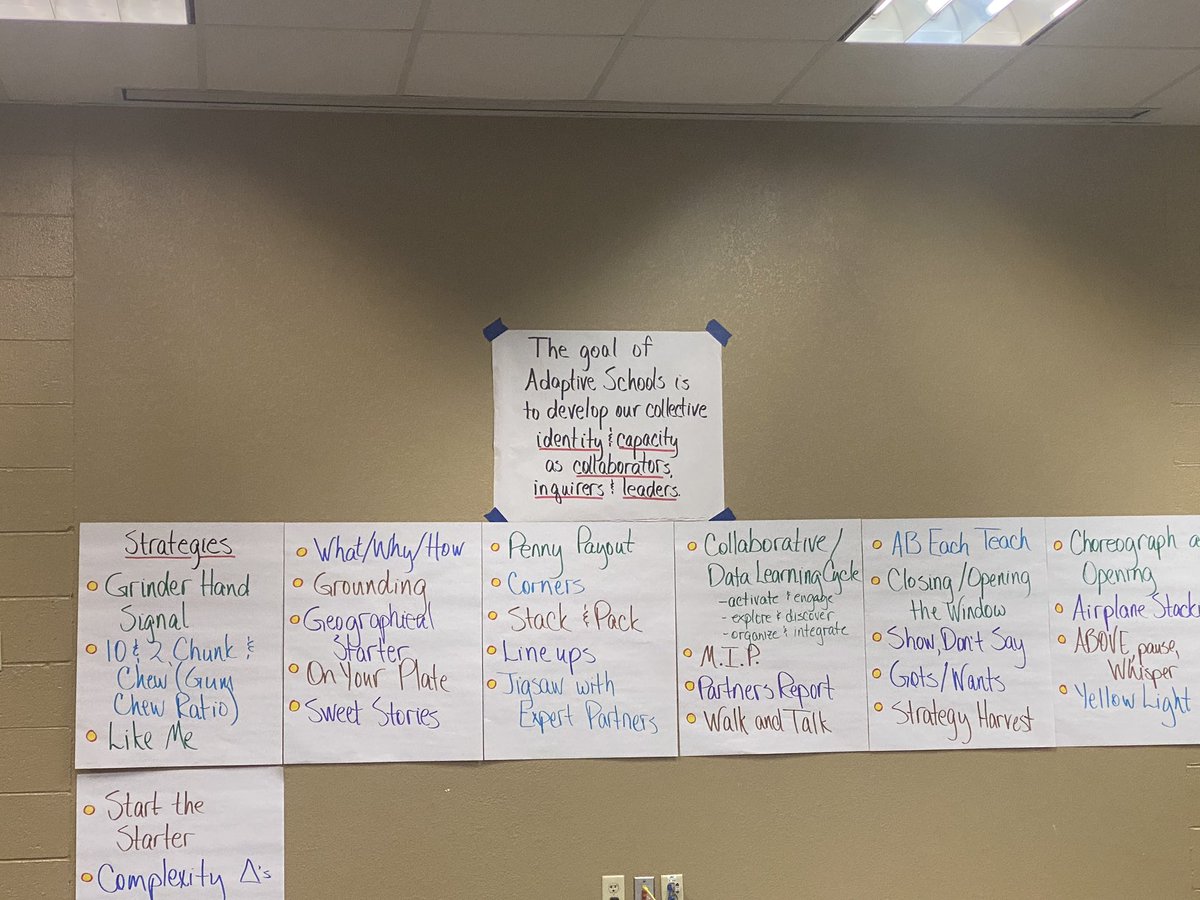 The goal of
Adaptive Schools is
to develop our collective
identity & capacity
as collaborators,
inquirers & leaders.
Strategies
Grinder Hand
Signal
10 & 2 Chunk &
Chew (Gum
Chew Ratio)
Like Me
What/Why/How
Grounding
Geographical
Starter
On Your Plate
Sweet Stories
Penny Payout
Corners
Stack & Pack
Line ups
Jigsaw with
Expert Partners
Collaborative/
Data Learning Cycle
-activate & engage
- explore & discover
- organize & integrate
M.I.P.
Partners Report
Walk and Talk
AB Each Teach
Closing/Opening
the Window
Show, Don't Say
Gots/Wants
Strategy Harvest
Choreograph
Opening
Airplane
ABOVE, pause,
Whisper
Yellow Light
Start the
Starter
Complexity Δ's